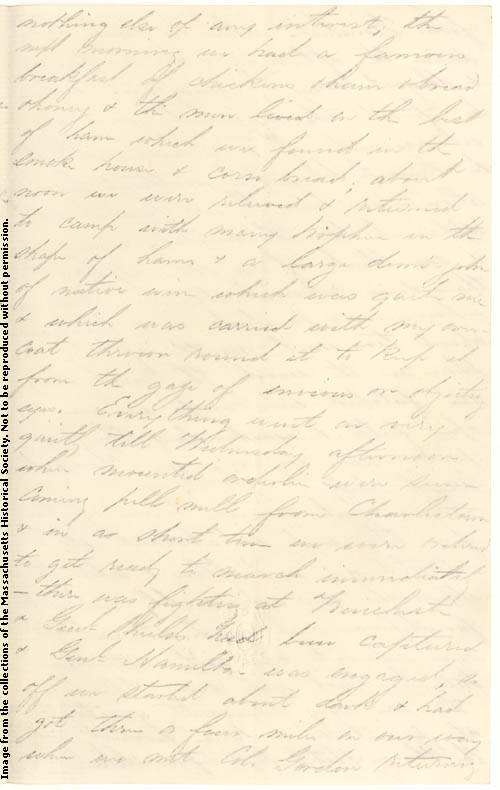 nothing else of any interest; the
next morning we had a famous
breakfast of chickens & ham & bread
& honey & the men lived on the best
of ham which we found in the
smoke house & corn bread; about
noon we were relieved & returned
to camp with many trophies in the
shape of hams & a large demi-john
of native wine which was quite nice
& which was carried with my over-
coat thrown round it to keep it
from the gaze of envious or objecting
eyes. Everything went on very
quietly till Wednesday afternoon
when mounted orderlies were seen
coming pell mell from Charlestown
& in as short time we were ordered
to get ready to march immediately
- there was fighting at Winchester
& Genl. Shields had been captured
& Genl. Hamilton was engaged, so
off we started about dark & had
got three or four miles on our way
when we met Col. Gordon returning
Image from the collections of the Massachusetts Historical Society. Not to be reproduced without permission.